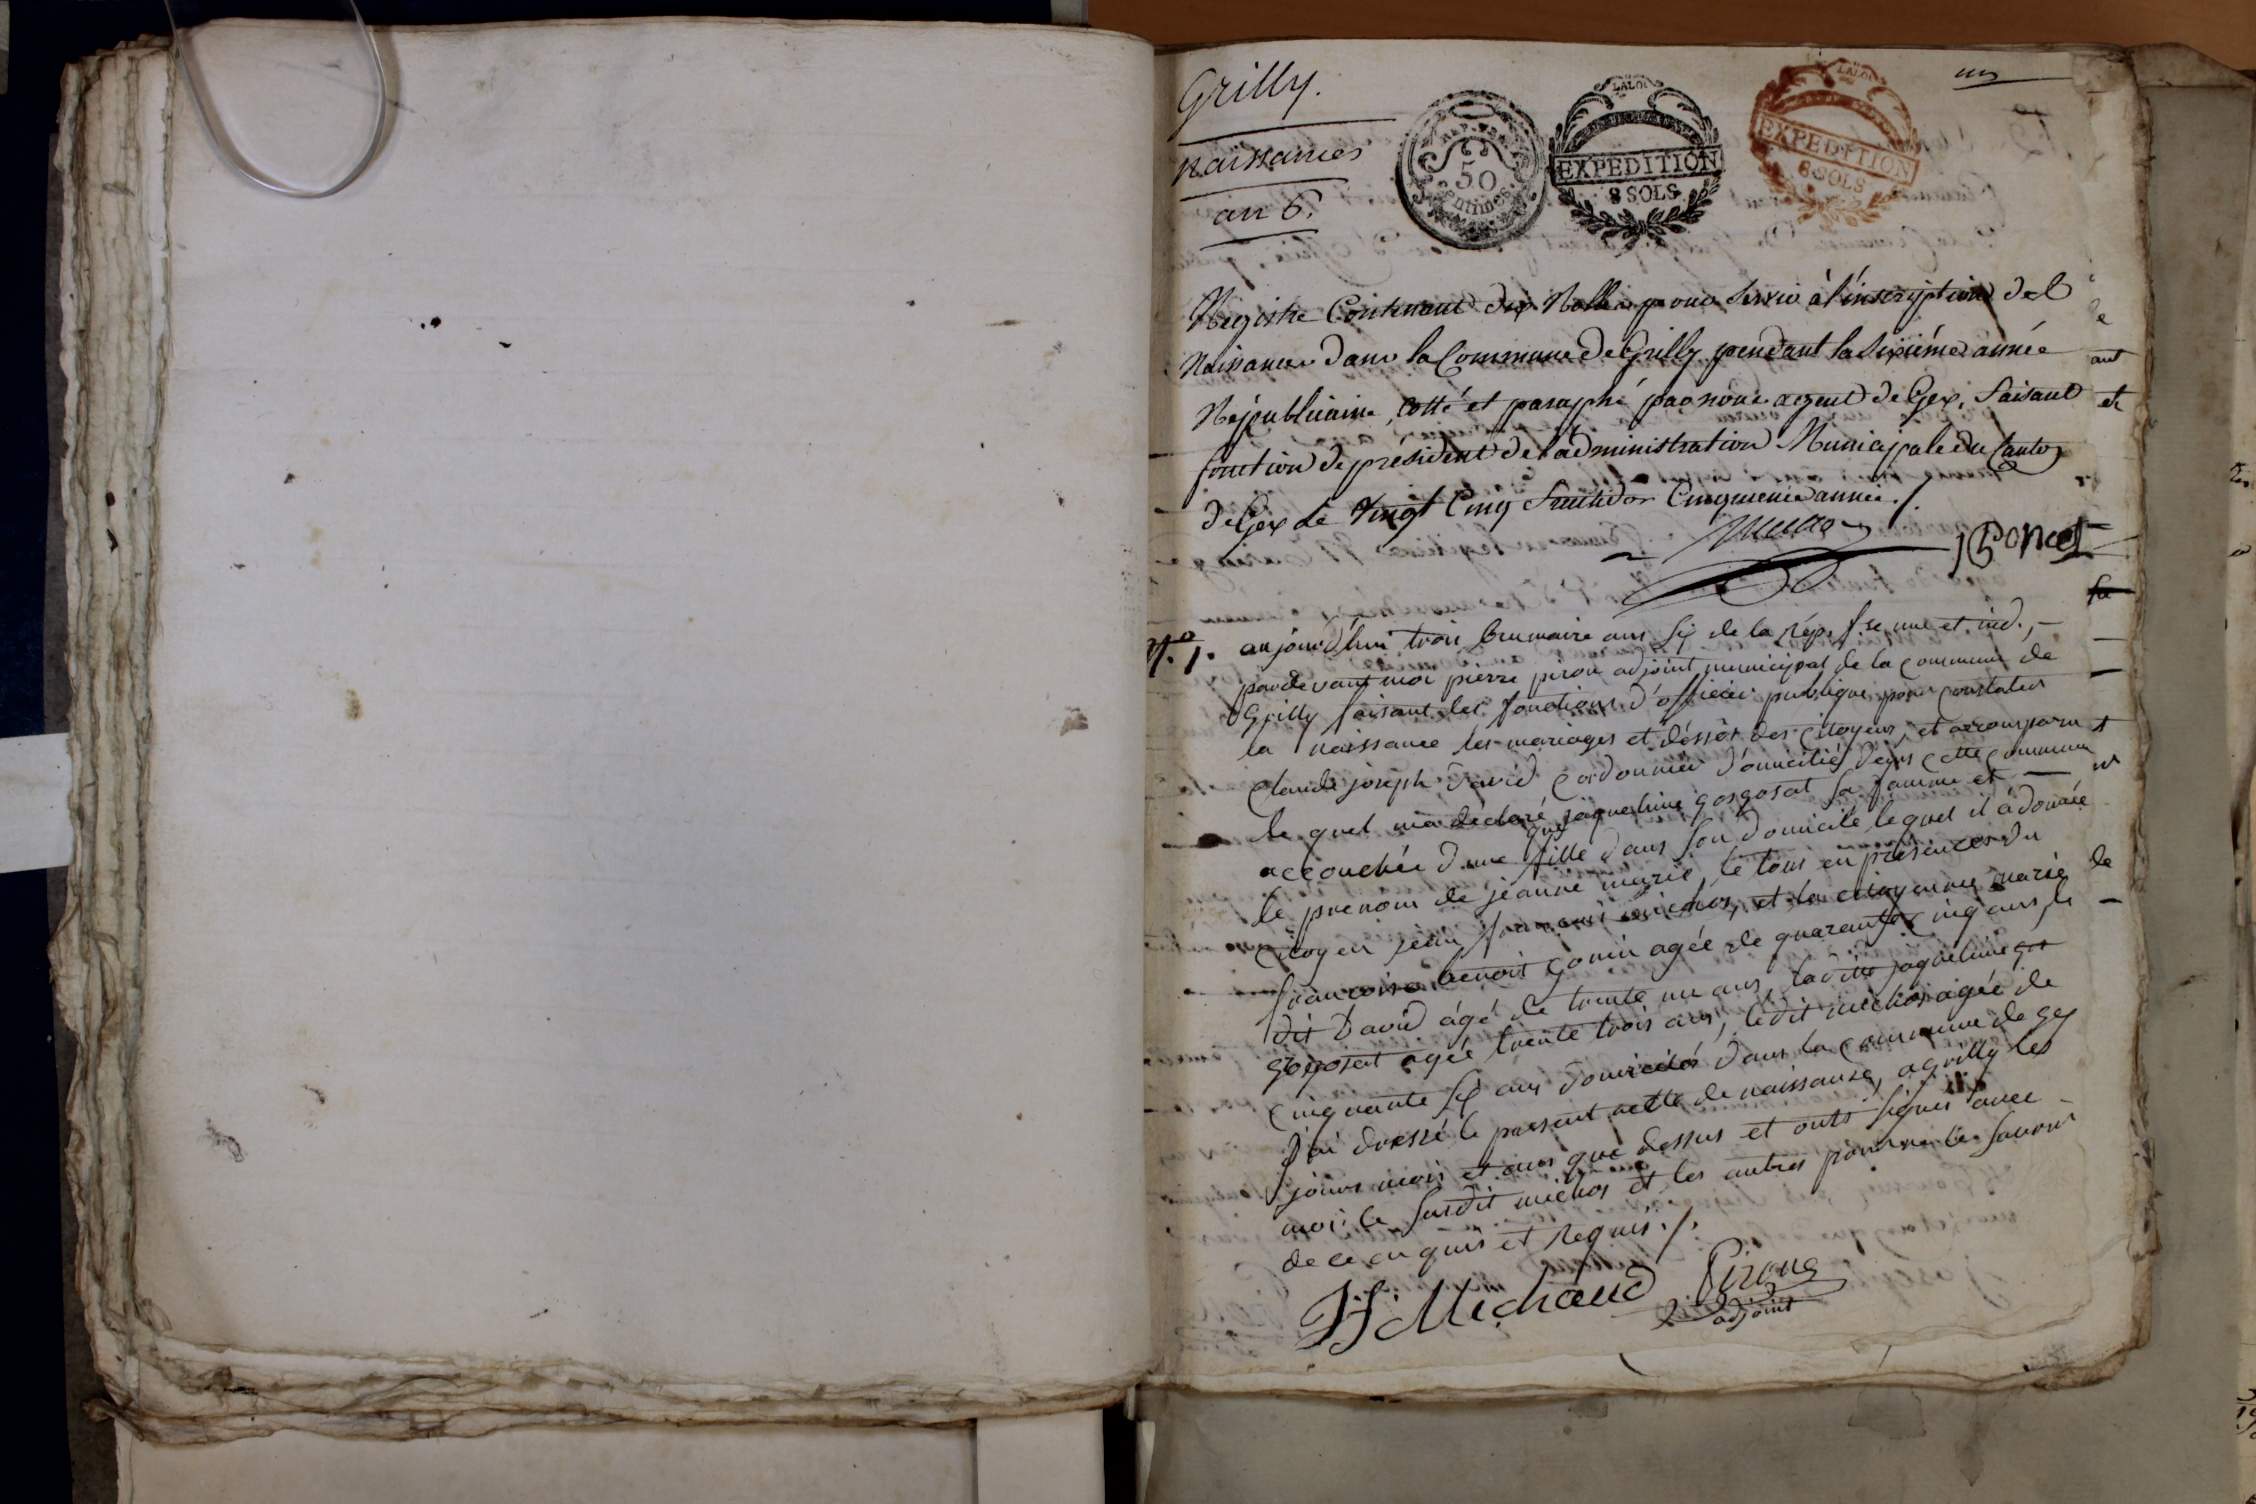 Grilly.
un
naissances
an 6.
REP. FRA
50
centimes
LA LOI
EXPEDITION
8 SOLS
LA LOI
EXPEDITION
8 SOLS
Registre Contenant dix Rolles pour servir à l'inscription des
Naissances dans la Commune de Grilly pendant la sixième année
Républicaine, cotté et paraphé par nous agent de Gex, faisant
fonction de président de l'administration Municipale du Canton
de Gex le Vingt Cinq fructidor Cinquieme année ./.
JG Poncet
N.º 1. aujourd'hui trois brumaire ans six de la rép. f.se une et ind.,
pardevant moi pierre piron adjoint municipal de la commune de
Grilly faisant les fonctions d'officier publique pour constater
la naissance les mariages et déssès des citoyens, et accomparu
Claude joseph David Cordonnier domicilié dans cette commune
le quel ma déclaré que jaqueline gosgosat sa famme et
accouchée d'une fille dans son domicile lequel il à donnée
le prenom de jeanne marie, le tous en présences du
citoyen jean francois michos, et la citoyenne marie
francoise benoit gonin agée de quarante cinq ans, le
dit David âgé de trente un ans, ladite jaqueline
gosgosat agée trente trois ans, ledit michos agée de
cinquante six ans domiciliés dans la commune de gex
J'ai dressé le present actte de naissance, a grilly les
jours mois et ans que dessus et onts signés avec
moi le susdit michos et les autres pour ne le savoir
de ce enquis et requis ./.
Jf Michaud Pirong
adjoint